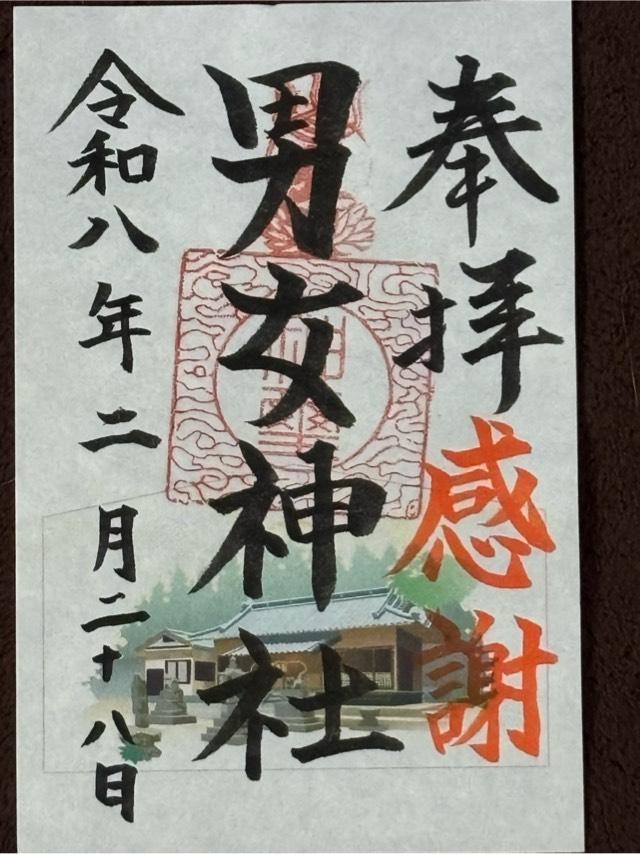 奉拝
感謝
男女神社
令和八年二月二十八日